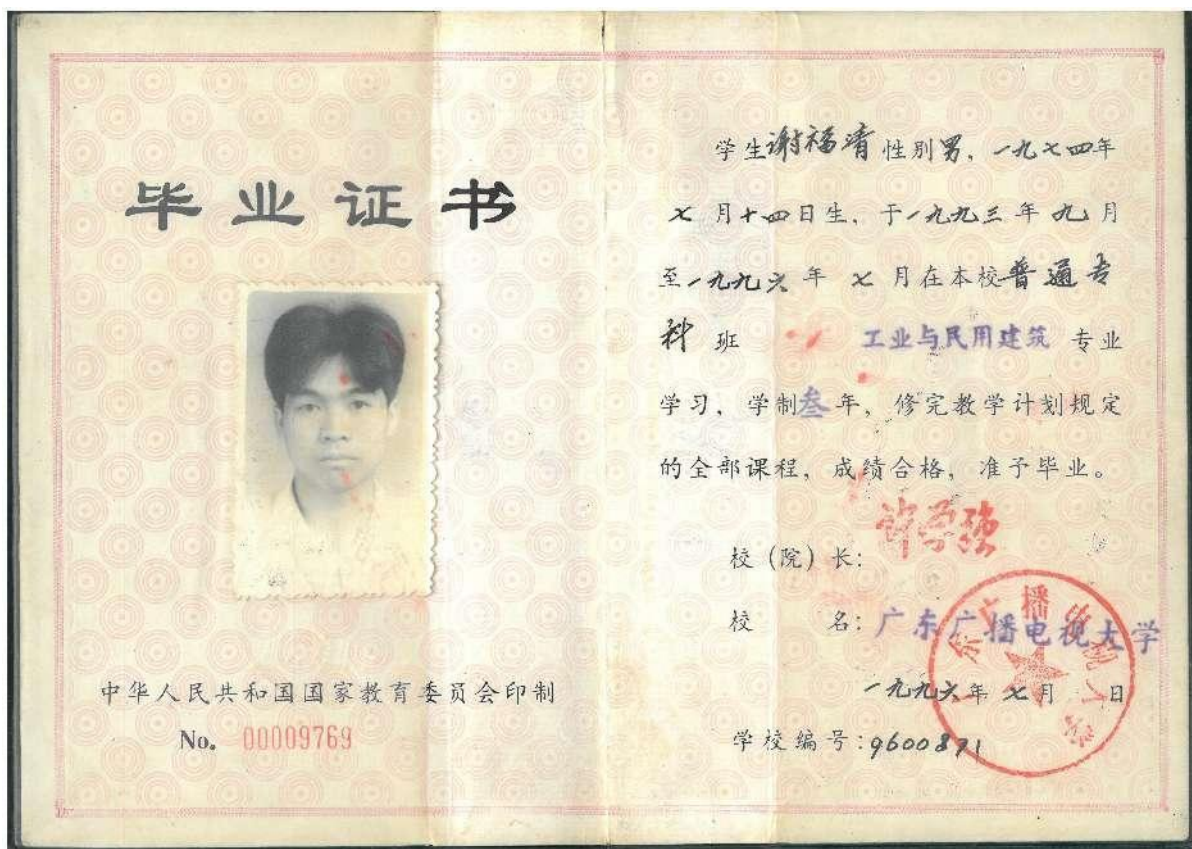 毕业证书
中华人民共和国国家教育委员会印制
No. 00009769
学生谢福清性别男，一九七四年
七月十四日生，于一九九三年九月
至一九九六年七月在本校普通专
科班 工业与民用建筑 专业
学习，学制叁年，修完教学计划规定
的全部课程，成绩合格，准予毕业。
校（院）长：许学强
校 名：广东广播电视大学
一九九六年七月 日
学校编号：9600871